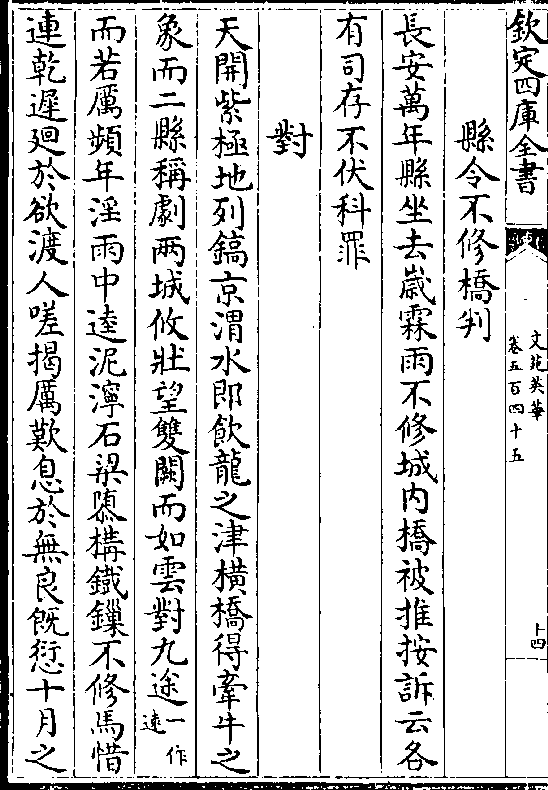 欽定四庫全書
文苑英華
卷五百四十五
十四
縣令不修橋判
長安萬年縣坐去嵗霖雨不修城内橋被推按訴云各
有司存不伏科罪
對
天開紫極地列鎬京渭水即飲龍之津橫橋得牽牛之
象而二縣稱劇兩城攸壯望雙闕而如雲對九途一作逵
而若厲頻年淫雨中逵泥濘石梁隳構鐵鏁不修馬惜
連乾遲廻於欲渡人嗟揭厲歎息於無良既愆十月之